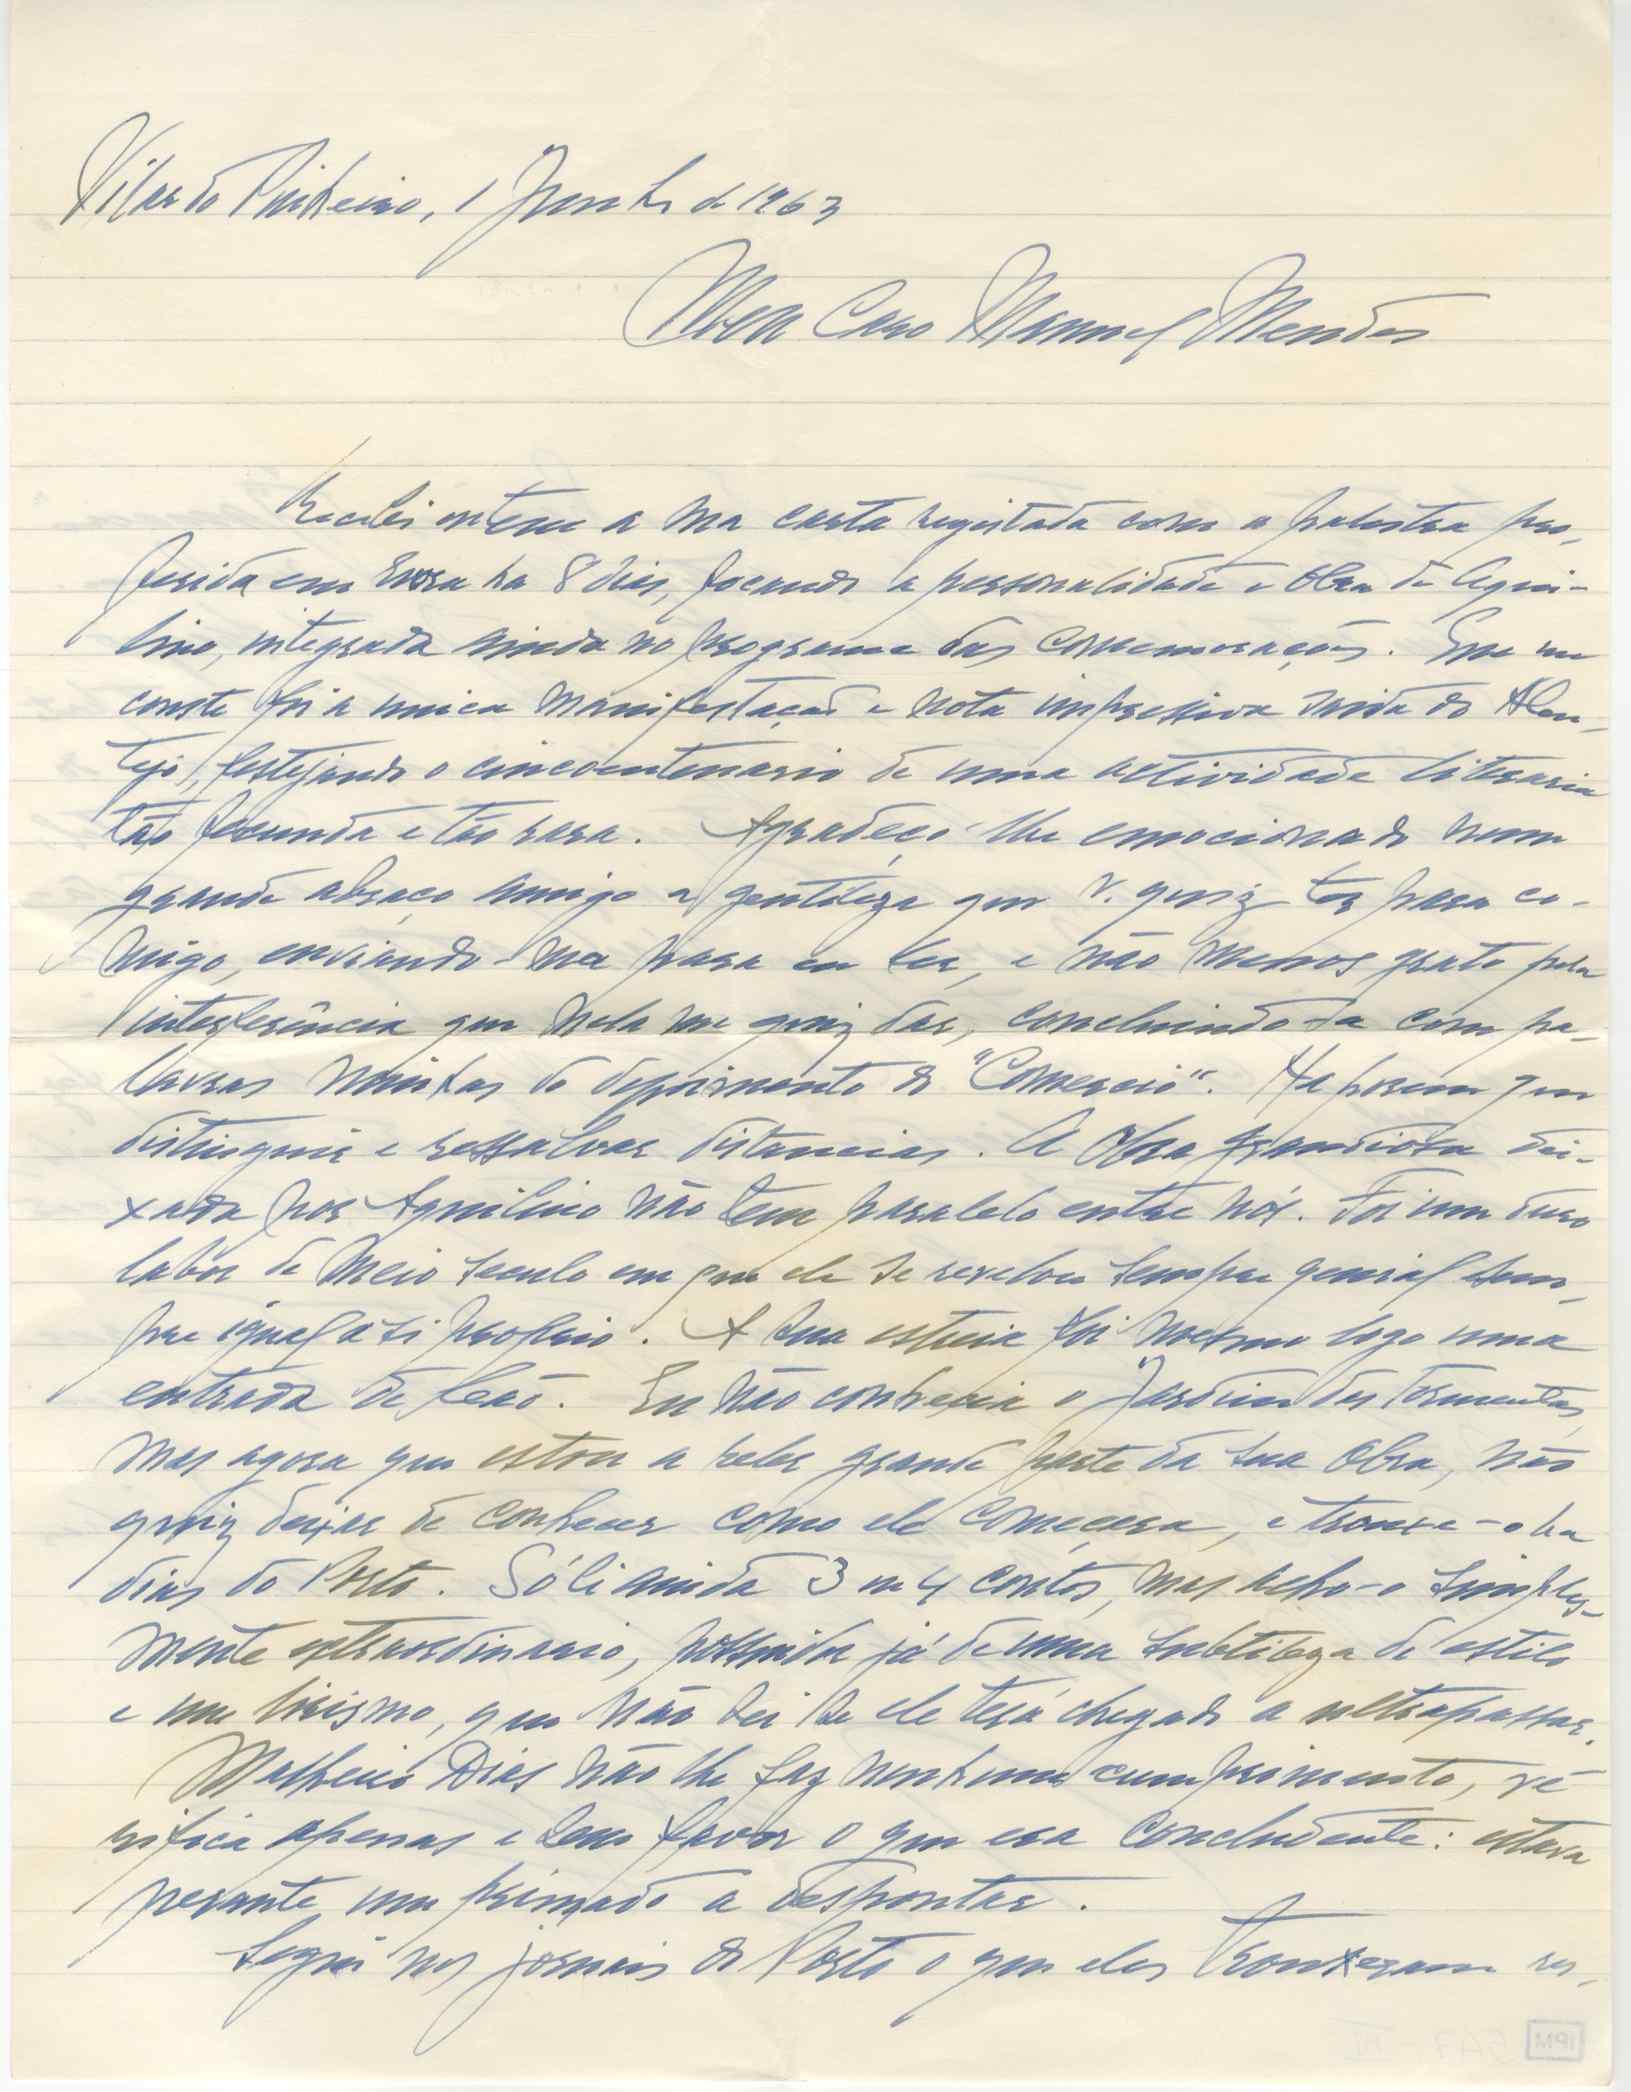 Vilar do Pinheiro, 1 Junho de 1963
Meu Caro Manuel Mendes
Recebi ontem a sua carta registada com a palestra pro-
ferida em Evora ha 8 dias, focando a personalidade e Obra de Aqui-
lino, integrada ainda no programa das comemorações. Que me
conste foi a unica manifestação e nota impressiva vinda do Alen-
tejo, festejando o cincoentenario de uma actividade literaria
tão fecunda e tão rara. Agradeço-lhe emocionado num
grande abraço amigo a gentileza que V. quiz ter para co-
migo, enviando-ma para eu ler, e não menos grato pela
interferência que nela me quiz dar, concluindo-a com pa-
lavras minhas do depoimento do "Comercio". Ha porem que
distinguir e ressalvar distancias. A Obra grandiosa dei-
xada por Aquilino não tem paralelo entre nós. Foi um duro
labor de meio seculo em que ele se revelou sempre genial e sem-
pre igual a si proprio. A sua estreia foi mesmo logo uma
entrada de leão. Eu não conhecia o Jardim das Tormentas,
mas agora que estou a reler grande parte da sua Obra, não
quiz deixar de conhecer como ele começara, e trouxe-o ha
dias do Porto. Só li ainda 3 ou 4 contos, mas acho-o simples-
mente extraordinario, possuida já de uma subtileza de estilo
e um lirismo, que não sei se ele terá chegado a ultrapassar.
Malheiro Dias não lhe faz nenhum cumprimento, ve-
rifica apenas e sem favor o que era concludente: estava
perante um primado a despontar.
Segui nos jornais do Porto o que eles trouxeram res-
IPM